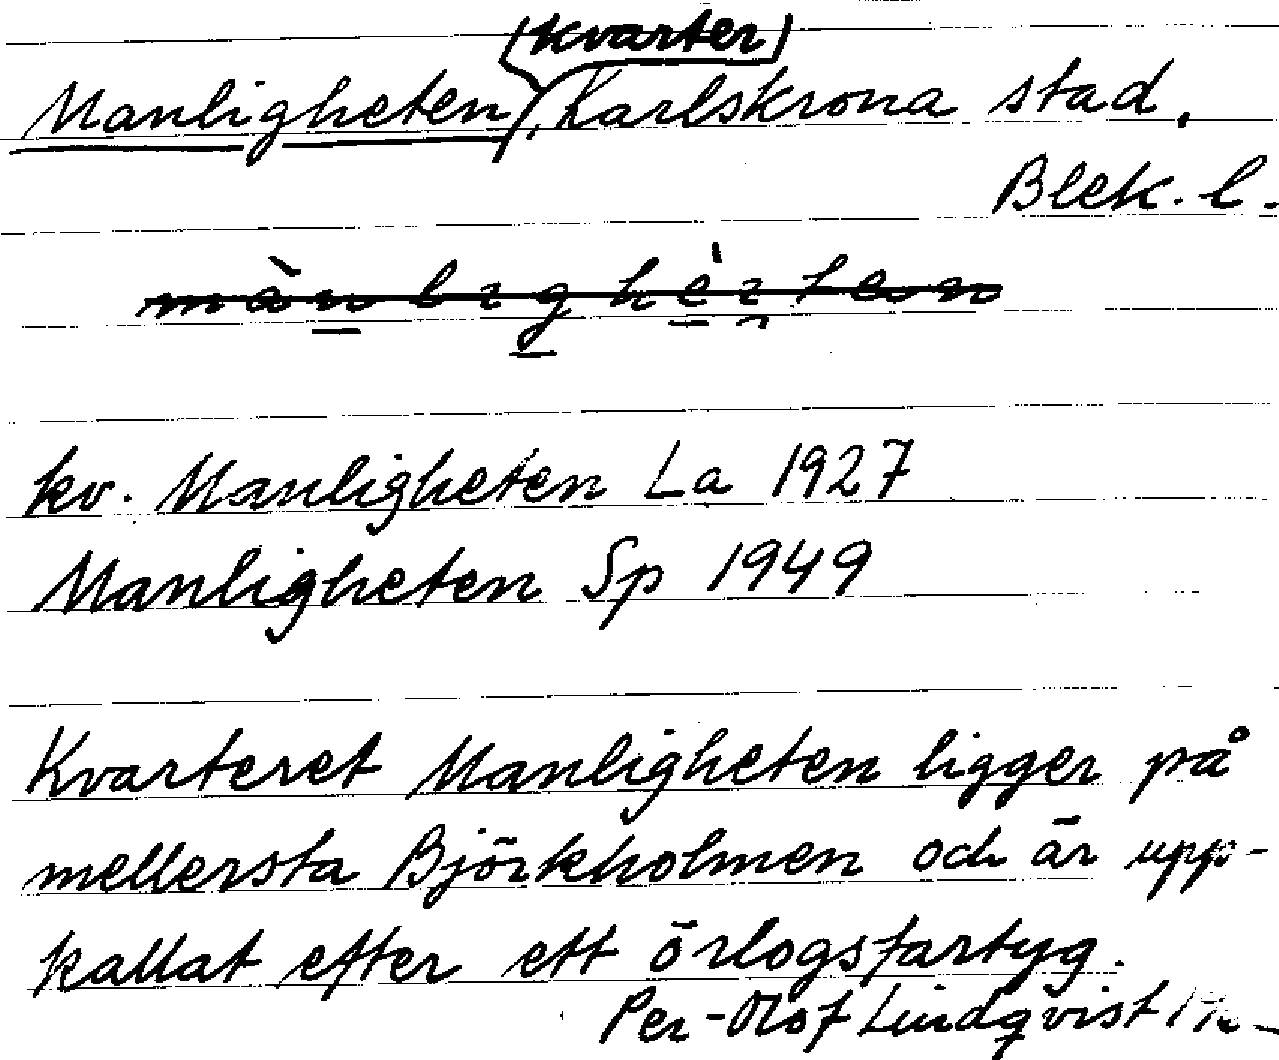 Manligheten (kvarter), Karlskrona stad,
Blek. l.
kv. Manligheten La 1927
Manligheten Sp 1949
Kvarteret Manligheten ligger på
mellersta Björkholmen och är upp-
kallat efter ett örlogsfartyg.
Per-Olof Lindqvist